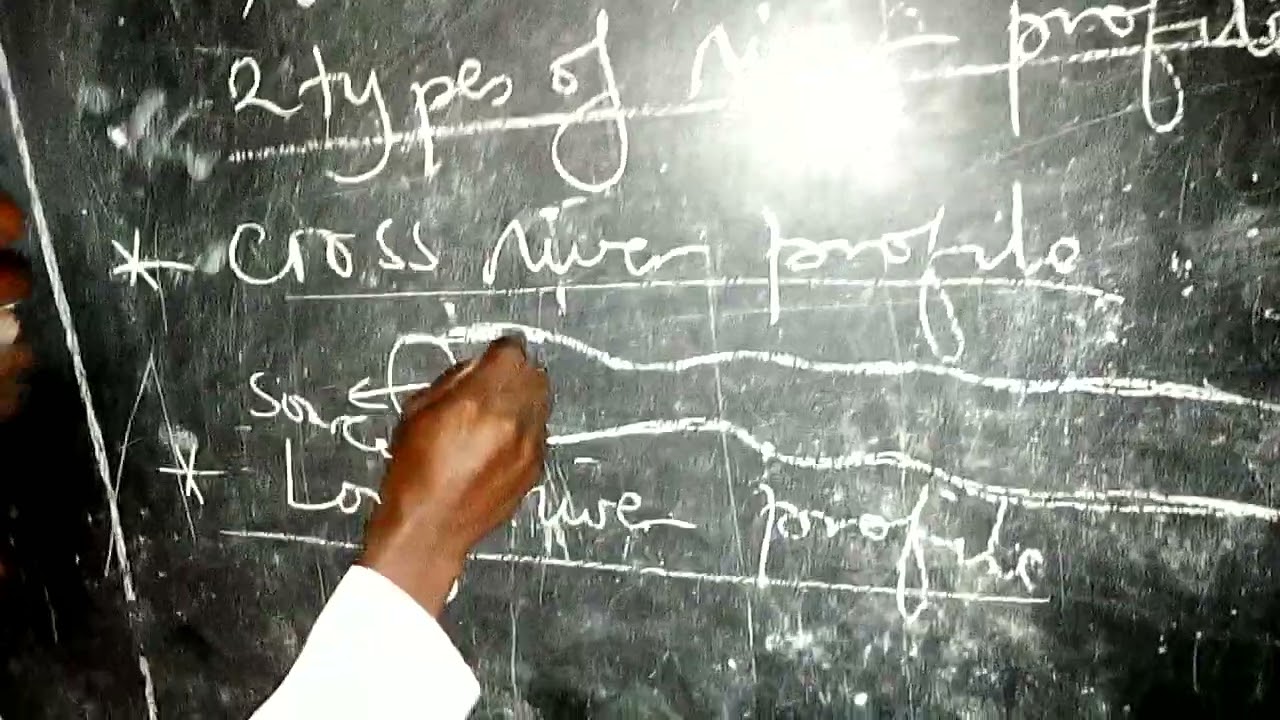 2 types of river profile
* Cross river profile
Source
* Lo river profile